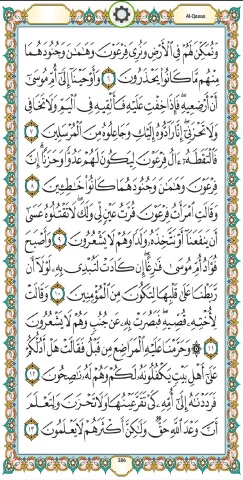 Al-Qasas
وَنُمَكِّنَ لَهُمْ فِي ٱلْأَرْضِ وَنُرِيَ فِرْعَوْنَ وَهَـٰمَـٰنَ وَجُنُودَهُمَا
مِنْهُم مَّا كَانُوا۟ يَحْذَرُونَ ٦ وَأَوْحَيْنَآ إِلَىٰٓ أُمِّ مُوسَىٰٓ
أَنْ أَرْضِعِيهِ ۖ فَإِذَا خِفْتِ عَلَيْهِ فَأَلْقِيهِ فِي ٱلْيَمِّ وَلَا تَخَافِي
وَلَا تَحْزَنِيٓ ۖ إِنَّا رَآدُّوهُ إِلَيْكِ وَجَاعِلُوهُ مِنَ ٱلْمُرْسَلِينَ ٧
فَٱلْتَقَطَهُۥٓ ءَالُ فِرْعَوْنَ لِيَكُونَ لَهُمْ عَدُوًّا وَحَزَنًا ۗ إِنَّ
فِرْعَوْنَ وَهَـٰمَـٰنَ وَجُنُودَهُمَا كَانُوا۟ خَـٰطِـِٔينَ ٨
وَقَالَتِ ٱمْرَأَتُ فِرْعَوْنَ قُرَّتُ عَيْنٍ لِّي وَلَكَ ۖ لَا تَقْتُلُوهُ عَسَىٰٓ
أَن يَنفَعَنَآ أَوْ نَتَّخِذَهُۥ وَلَدًا وَهُمْ لَا يَشْعُرُونَ ٩ وَأَصْبَحَ
فُؤَادُ أُمِّ مُوسَىٰ فَـٰرِغًا ۖ إِن كَادَتْ لَتُبْدِي بِهِۦ لَوْلَآ أَن
رَّبَطْنَا عَلَىٰ قَلْبِهَا لِتَكُونَ مِنَ ٱلْمُؤْمِنِينَ ١٠ وَقَالَتْ
لِأُخْتِهِۦ قُصِّيهِ ۖ فَبَصُرَتْ بِهِۦ عَن جُنُبٍ وَهُمْ لَا يَشْعُرُونَ
١١ ۞ وَحَرَّمْنَا عَلَيْهِ ٱلْمَرَاضِعَ مِن قَبْلُ فَقَالَتْ هَلْ أَدُلُّكُمْ
عَلَىٰٓ أَهْلِ بَيْتٍ يَكْفُلُونَهُۥ لَكُمْ وَهُمْ لَهُۥ نَـٰصِحُونَ ١٢
فَرَدَدْنَـٰهُ إِلَىٰٓ أُمِّهِۦ كَيْ تَقَرَّ عَيْنُهَا وَلَا تَحْزَنَ وَلِتَعْلَمَ
أَنَّ وَعْدَ ٱللَّهِ حَقٌّ وَلَـٰكِنَّ أَكْثَرَهُمْ لَا يَعْلَمُونَ ١٣
386